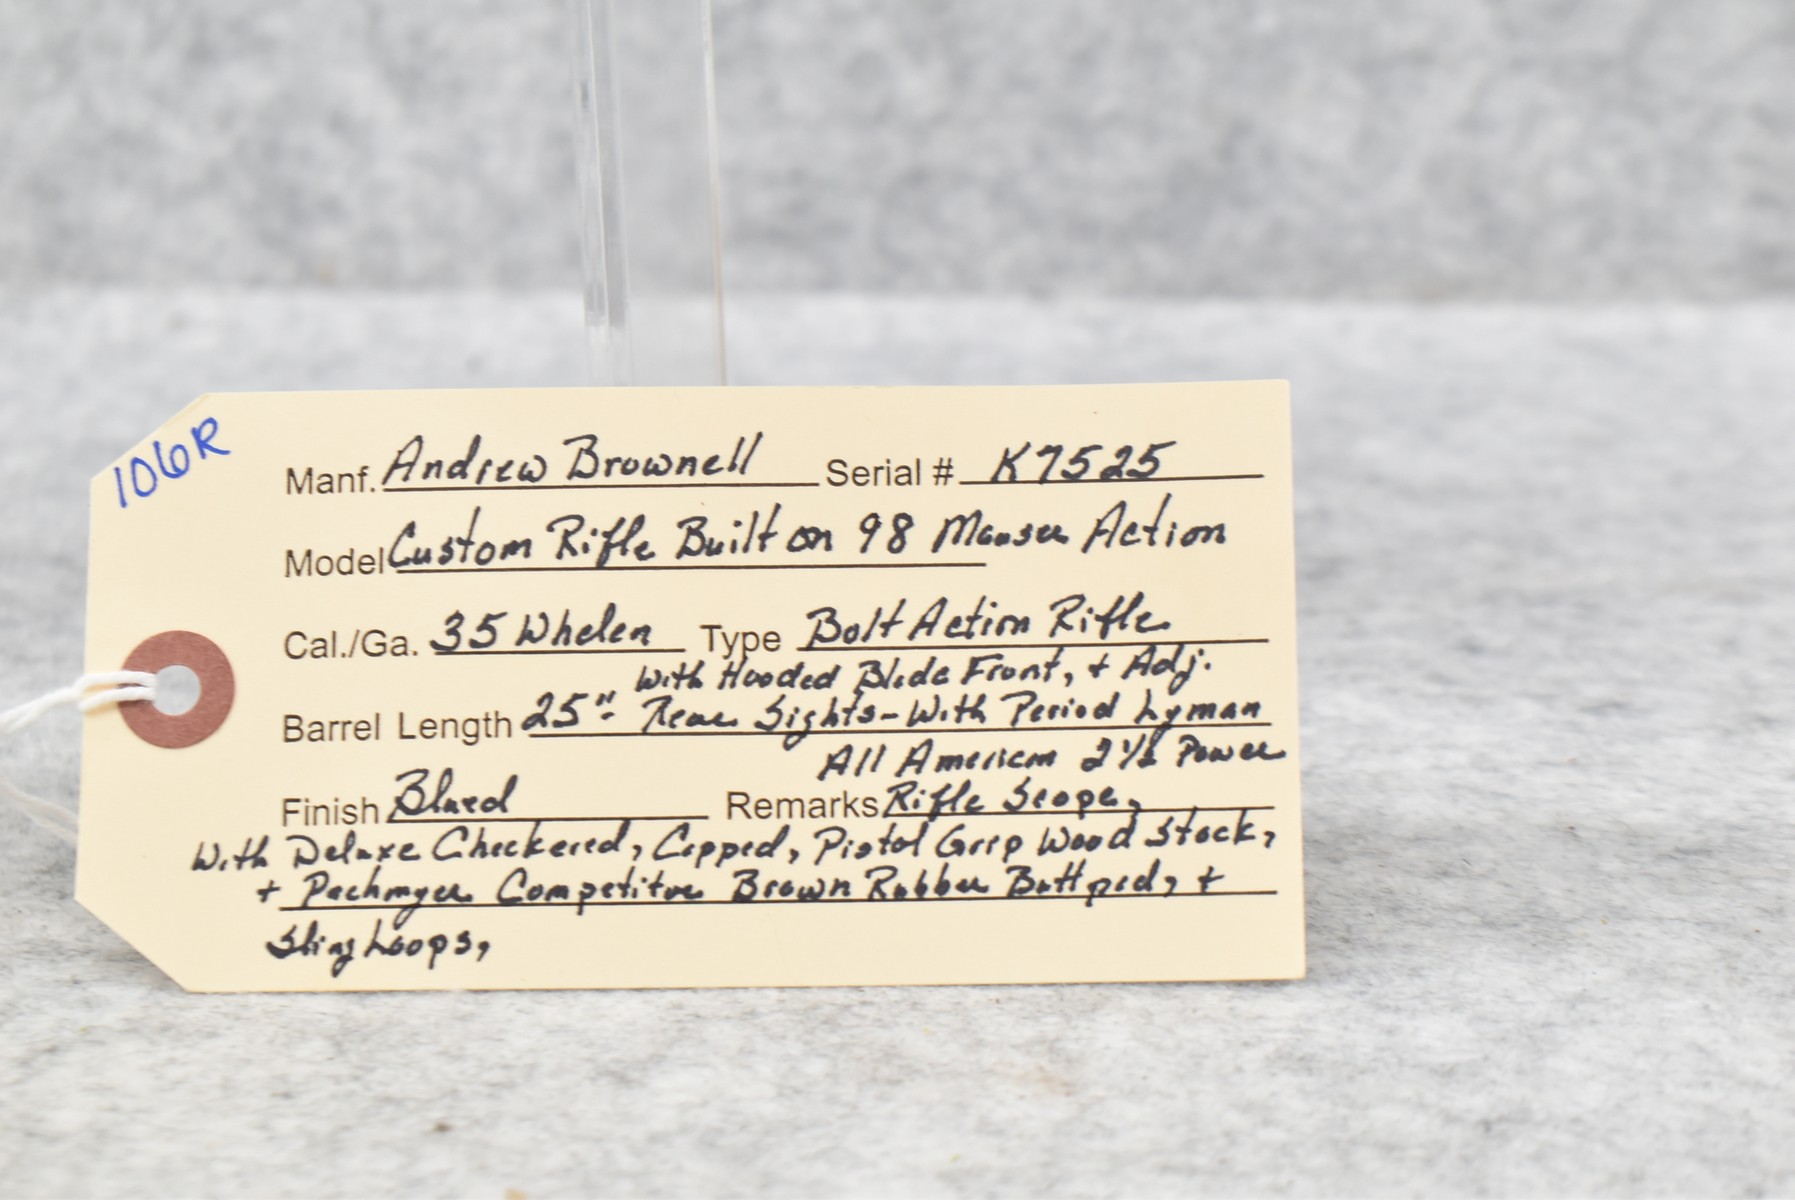 106R
Manf. Andrew Brownell Serial # K7525
Model Custom Rifle Built on 98 Mauser Action
Cal./Ga. 35 Whelen Type Bolt Action Rifle
With Hooded Blade Front, + Adj.
Barrel Length 25" - Rear Sights - With Period Lyman
All American 2 1/2 Power
Finish Blued Remarks Rifle Scope,
With Deluxe Checkered, Capped, Pistol Grip Wood Stock,
+ Pachmyer Competitor Brown Rubber Buttpad, +
Sling Loops,